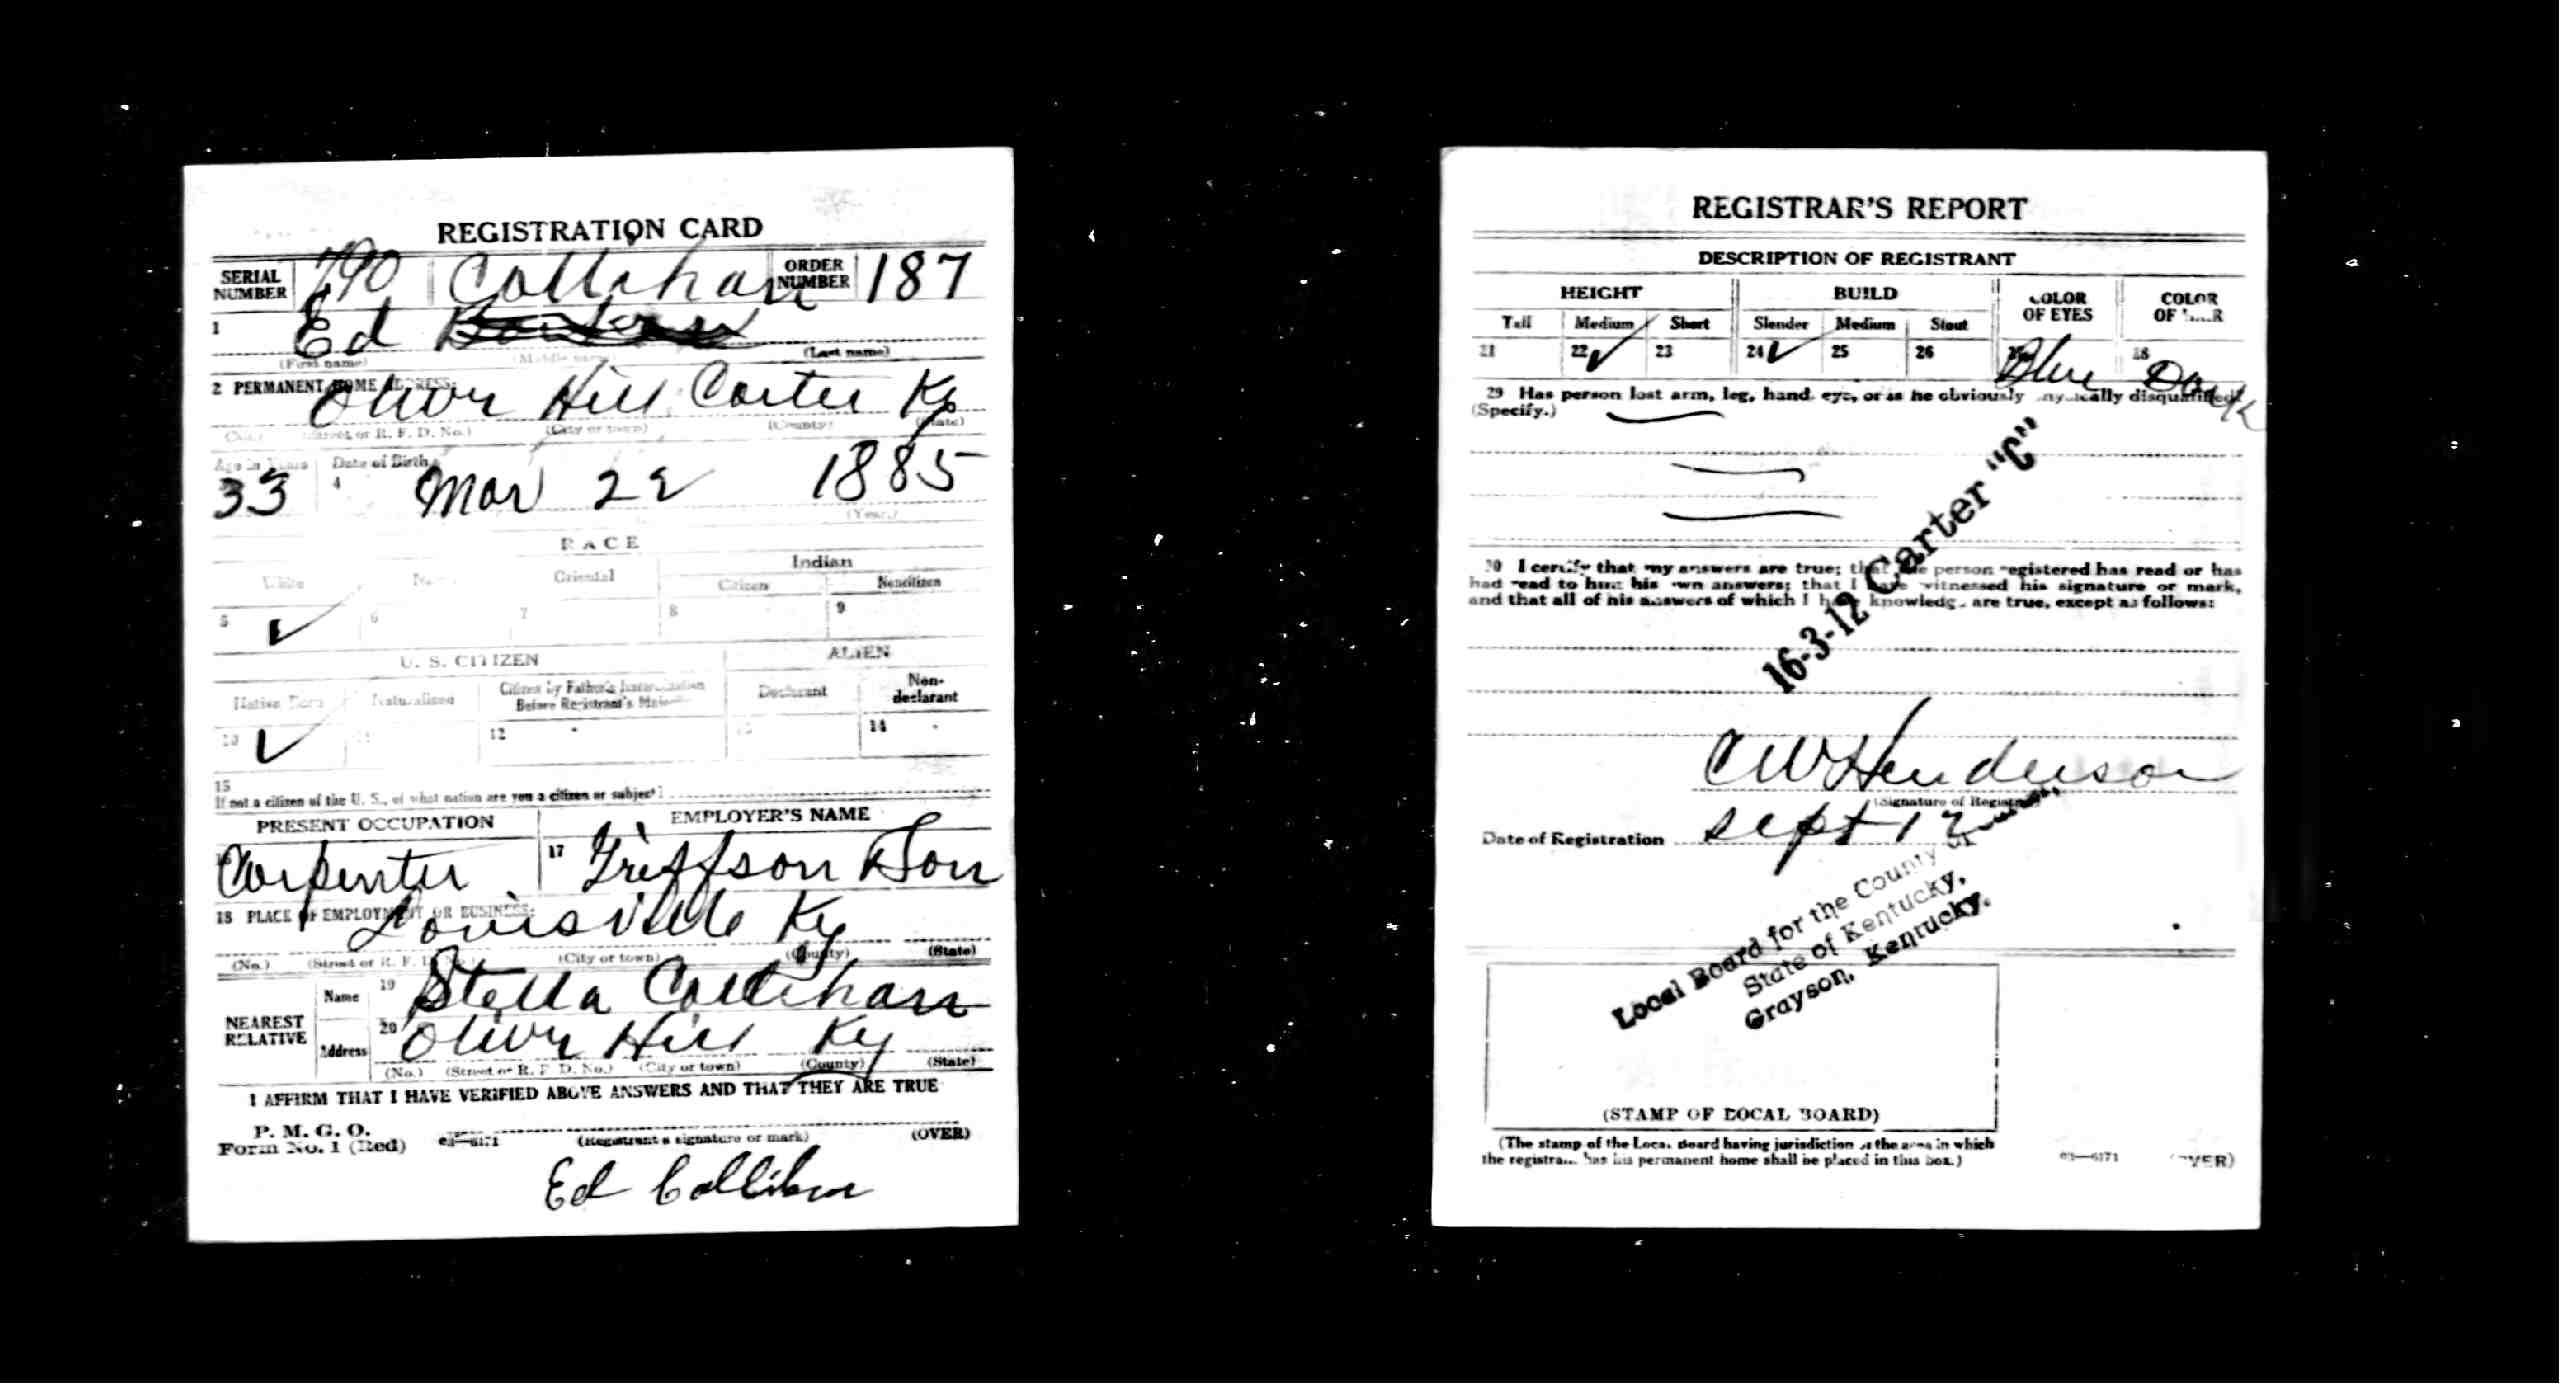 REGISTRATION CARD
SERIAL NUMBER 790 Callihan ORDER NUMBER 187
1 Ed
(First name) (Middle name) (Last name)
2 PERMANENT HOME ADDRESS:
Olivr Hill Carter Ky
(No.) (Street or R. F. D. No.) (City or town) (County) (State)
Age in Years Date of Birth
33 4 Mar 22 1885
(Year)
RACE
White Oriental Indian
Citizen Noncitizen
5 ✓ 6 7 8 9
U. S. CITIZEN ALIEN
Native Born Naturalized Citizen by Father's Naturalization Before Registrant's Declarant Non-declarant
10 ✓ 11 12 13 14
15
If not a citizen of the U. S., of what nation are you a citizen or subject?
PRESENT OCCUPATION EMPLOYER'S NAME
16 Carpenter 17 Griffson & Son
18 PLACE OF EMPLOYMENT OR BUSINESS:
Louisville Ky
(No.) (Street or R. F. D. No.) (City or town) (County) (State)
NEAREST RELATIVE Name 19 Stella Callihan
Address 20 Olivr Hill Ky
(No.) (Street or R. F. D. No.) (City or town) (County) (State)
I AFFIRM THAT I HAVE VERIFIED ABOVE ANSWERS AND THAT THEY ARE TRUE
P. M. G. O.
Form No. 1 (Red) 03—6171 (Registrant's signature or mark) (OVER)
Ed Callihan
REGISTRAR'S REPORT
DESCRIPTION OF REGISTRANT
HEIGHT BUILD COLOR OF EYES COLOR OF HAIR
Tall Medium Short Slender Medium Stout
21 22 ✓ 23 24 ✓ 25 26 27 Blue 28 Dark
29 Has person lost arm, leg, hand, eye, or is he obviously physically disqualified?
(Specify.)
30 I certify that my answers are true; that the person registered has read or has
had read to him his own answers; that I have witnessed his signature or mark,
and that all of his answers of which I have knowledge are true, except as follows:
16-3-12 Carter "C"
C W Henderson
(Signature of Registrar)
Date of Registration Sept 12
Local Board for the County of
State of Kentucky,
Grayson, Kentucky.
(STAMP OF LOCAL BOARD)
(The stamp of the Local Board having jurisdiction of the area in which
the registrant has his permanent home shall be placed in this box.)
03—6171 (OVER)